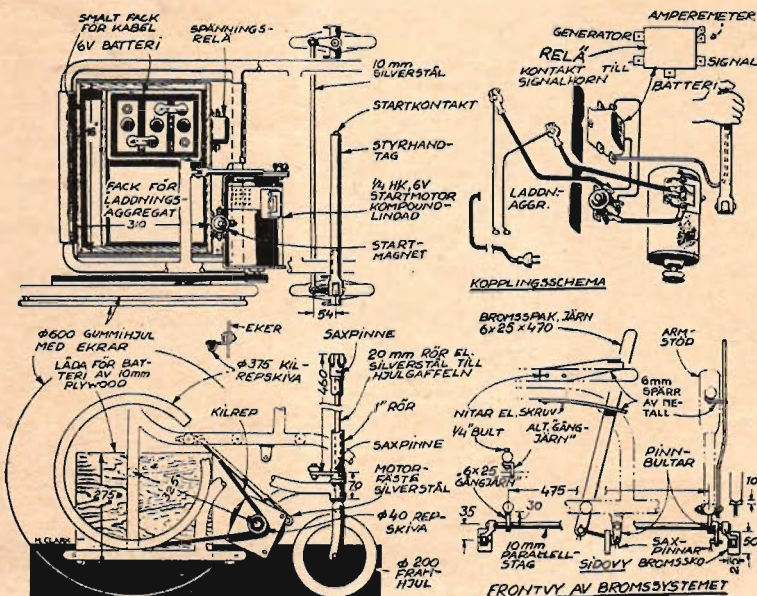 SMALT FACK
FÖR KABEL
6V BATTERI
SPÄNNINGS-
RELÄ
10 mm
SILVERSTÅL
STARTKONTAKT
STYRHAND-
TAG
¼ HK, 6V
STARTMOTOR
KOMPOUND-
LINDAD
START-
MAGNET
FACK FÖR
LADDNINGS-
AGGREGAT
310
54
GENERATOR
AMPEREMETER
RELÄ
SIGNAL
KONTAKT TILL
SIGNALHORN
BATTERI
LADDN.-
AGGR.
KOPPLINGSSCHEMA
Ø600 GUMMIHJUL
MED EKRAR
LÅDA FÖR BAT-
TERI AV 10mm
PLYWOOD
EKER
Ø375 KIL-
REPSKIVA
KILREP
275
325
M. CLARK
460
SAXPINNE
20 mm RÖR EL.
SILVERSTÅL TILL
HJULGAFFELN
1" RÖR
SAXPINNE
MOTOR-
FÄSTE
SILVERSTÅL
70
Ø40 REP-
SKIVA
Ø 200
FRAM-
HJUL
BROMSSPAK, JÄRN
6x25x470
ARM-
STÖD
6mm
SPÄRR
AV ME-
TALL
NITAR EL. SKRUV
¼" BULT
ALT. GÅNG-
JÄRN"
6x25
GÅNGJÄRN
PINN-
BULTAR
475
35
30
10
50
25
10mm
PARALLELL-
STAG
SAX-
PINNAR
SIDOVY
BROMSSKO
FRONTVY AV BROMSSYSTEMET